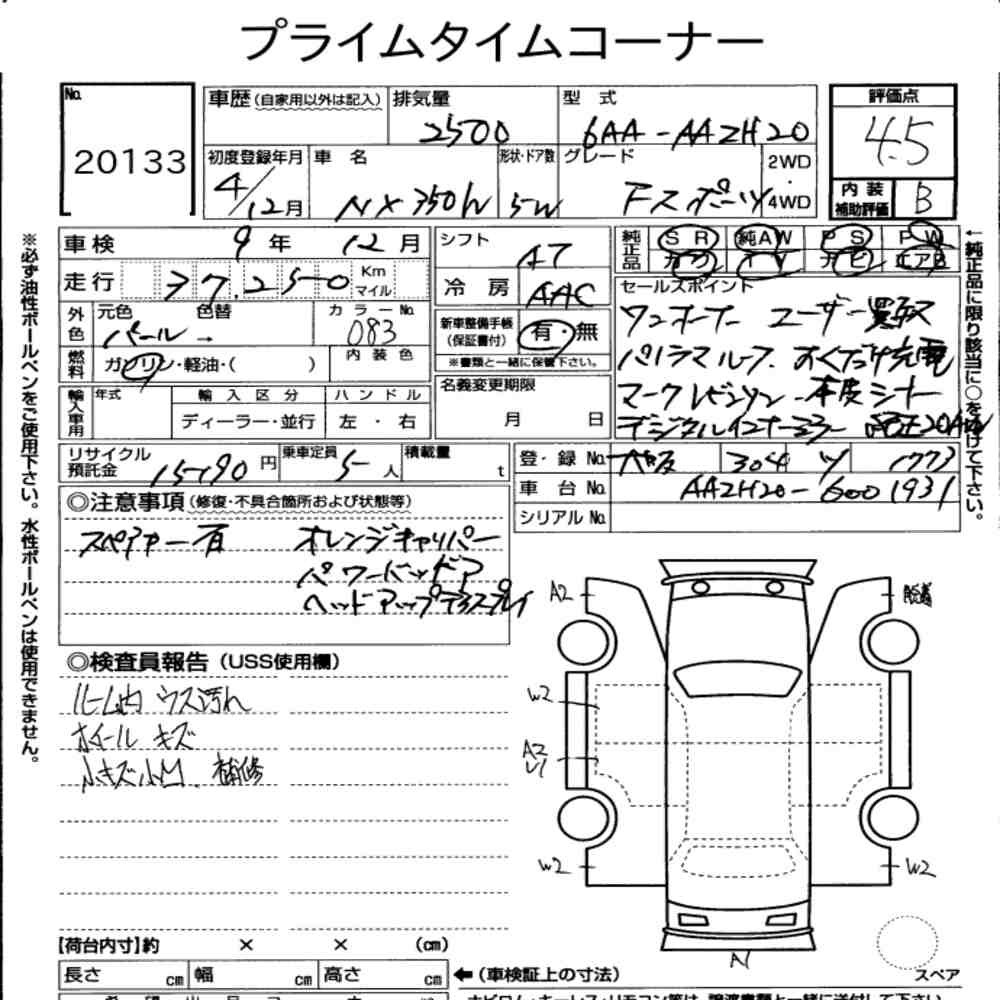 プライムタイムコーナー
No. 20133
車歴 (自家用以外は記入) 排気量 2500 型式 6AA-AAZH20
評価点 4.5
初度登録年月 4/12月 車名 NX350h 形状・ドア数 5W グレード Fスポーツ 2WD・4WD
内装補助評価 B
車検 9年 12月 シフト AT 純正品 SR 純AW PS PW
走行 37,250 Km マイル 冷房 AAC カワ TV ナビ エアB
外色 元色 パール 色替 → カラーNo. 083 新車整備手帳(保証書付) 有・無 ※書類と一緒に保管下さい。
燃料 ガソリン・軽油・( ) 内装色
セールスポイント
ワンオーナー ユーザー買取
パノラマルーフ. おくだけ充電
マークレビンソン 本皮シート
デジタルインナーミラー 純正20AW
輸入車用 年式 輸入区分 ディーラー・並行 ハンドル 左・右 名義変更期限 月 日
リサイクル預託金 15190円 乗車定員 5人 積載量 t
登録No. 大阪 304 ツ 1773
車台No. AAZH20-6001931
シリアルNo.
◎注意事項 (修復・不具合箇所および状態等)
スペアキー有 オレンジキャリパー
パワーバックドア
ヘッドアップディスプレイ
◎検査員報告 (USS使用欄)
ルーム内 ウス汚れ
ホイール キズ
小キズ小凹. 補修
A2
W2
A2
U1
W2
W2
N
スペア
【荷台内寸】約 × × (cm)
長さ cm 幅 cm 高さ cm ←(車検証上の寸法)
※必ず油性ボールペンをご使用下さい。水性ボールペンは使用できません。
←純正品に限り該当に○を付けて下さい。